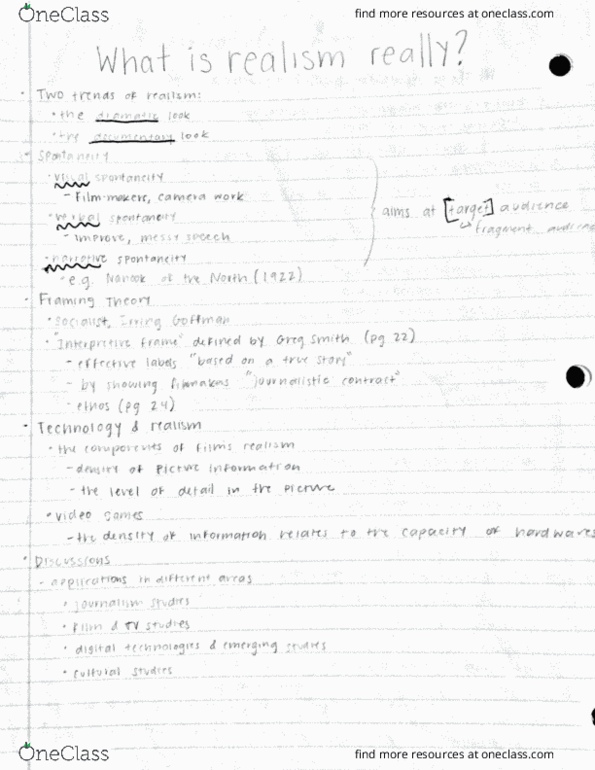 OneClass
find more resources at oneclass.com
What is realism really?
• Two trends of realism:
• the dramatic look
• the documentary look
• Spontaneity
• visual spontaneity
- Film-makers, camera work
• verbal spontaneity
- improve, messy speech
• narrative spontaneity
- e.g. Nanook of the North (1922)
aims at [target] audience
↳ fragment audience
• Framing Theory
• Socialist, Erving Goffman
• "Interpretive Frame" defined by Greg Smith (pg 22)
- effective labels "based on a true story"
- by showing filmakers "journalistic contract"
- ethos (pg 24)
• Technology & realism
• the components of films realism
- density of picture information
- the level of detail in the picture
• video games
- the density of information relates to the capacity of hardwares
• Discussions
- applications in different areas
• journalism studies
• Film & TV studies
• digital technologies & emerging studies
• cultural studies
OneClass
find more resources at oneclass.com